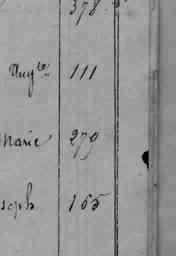 378.
Aug^te 111
Marie 279
seph 165